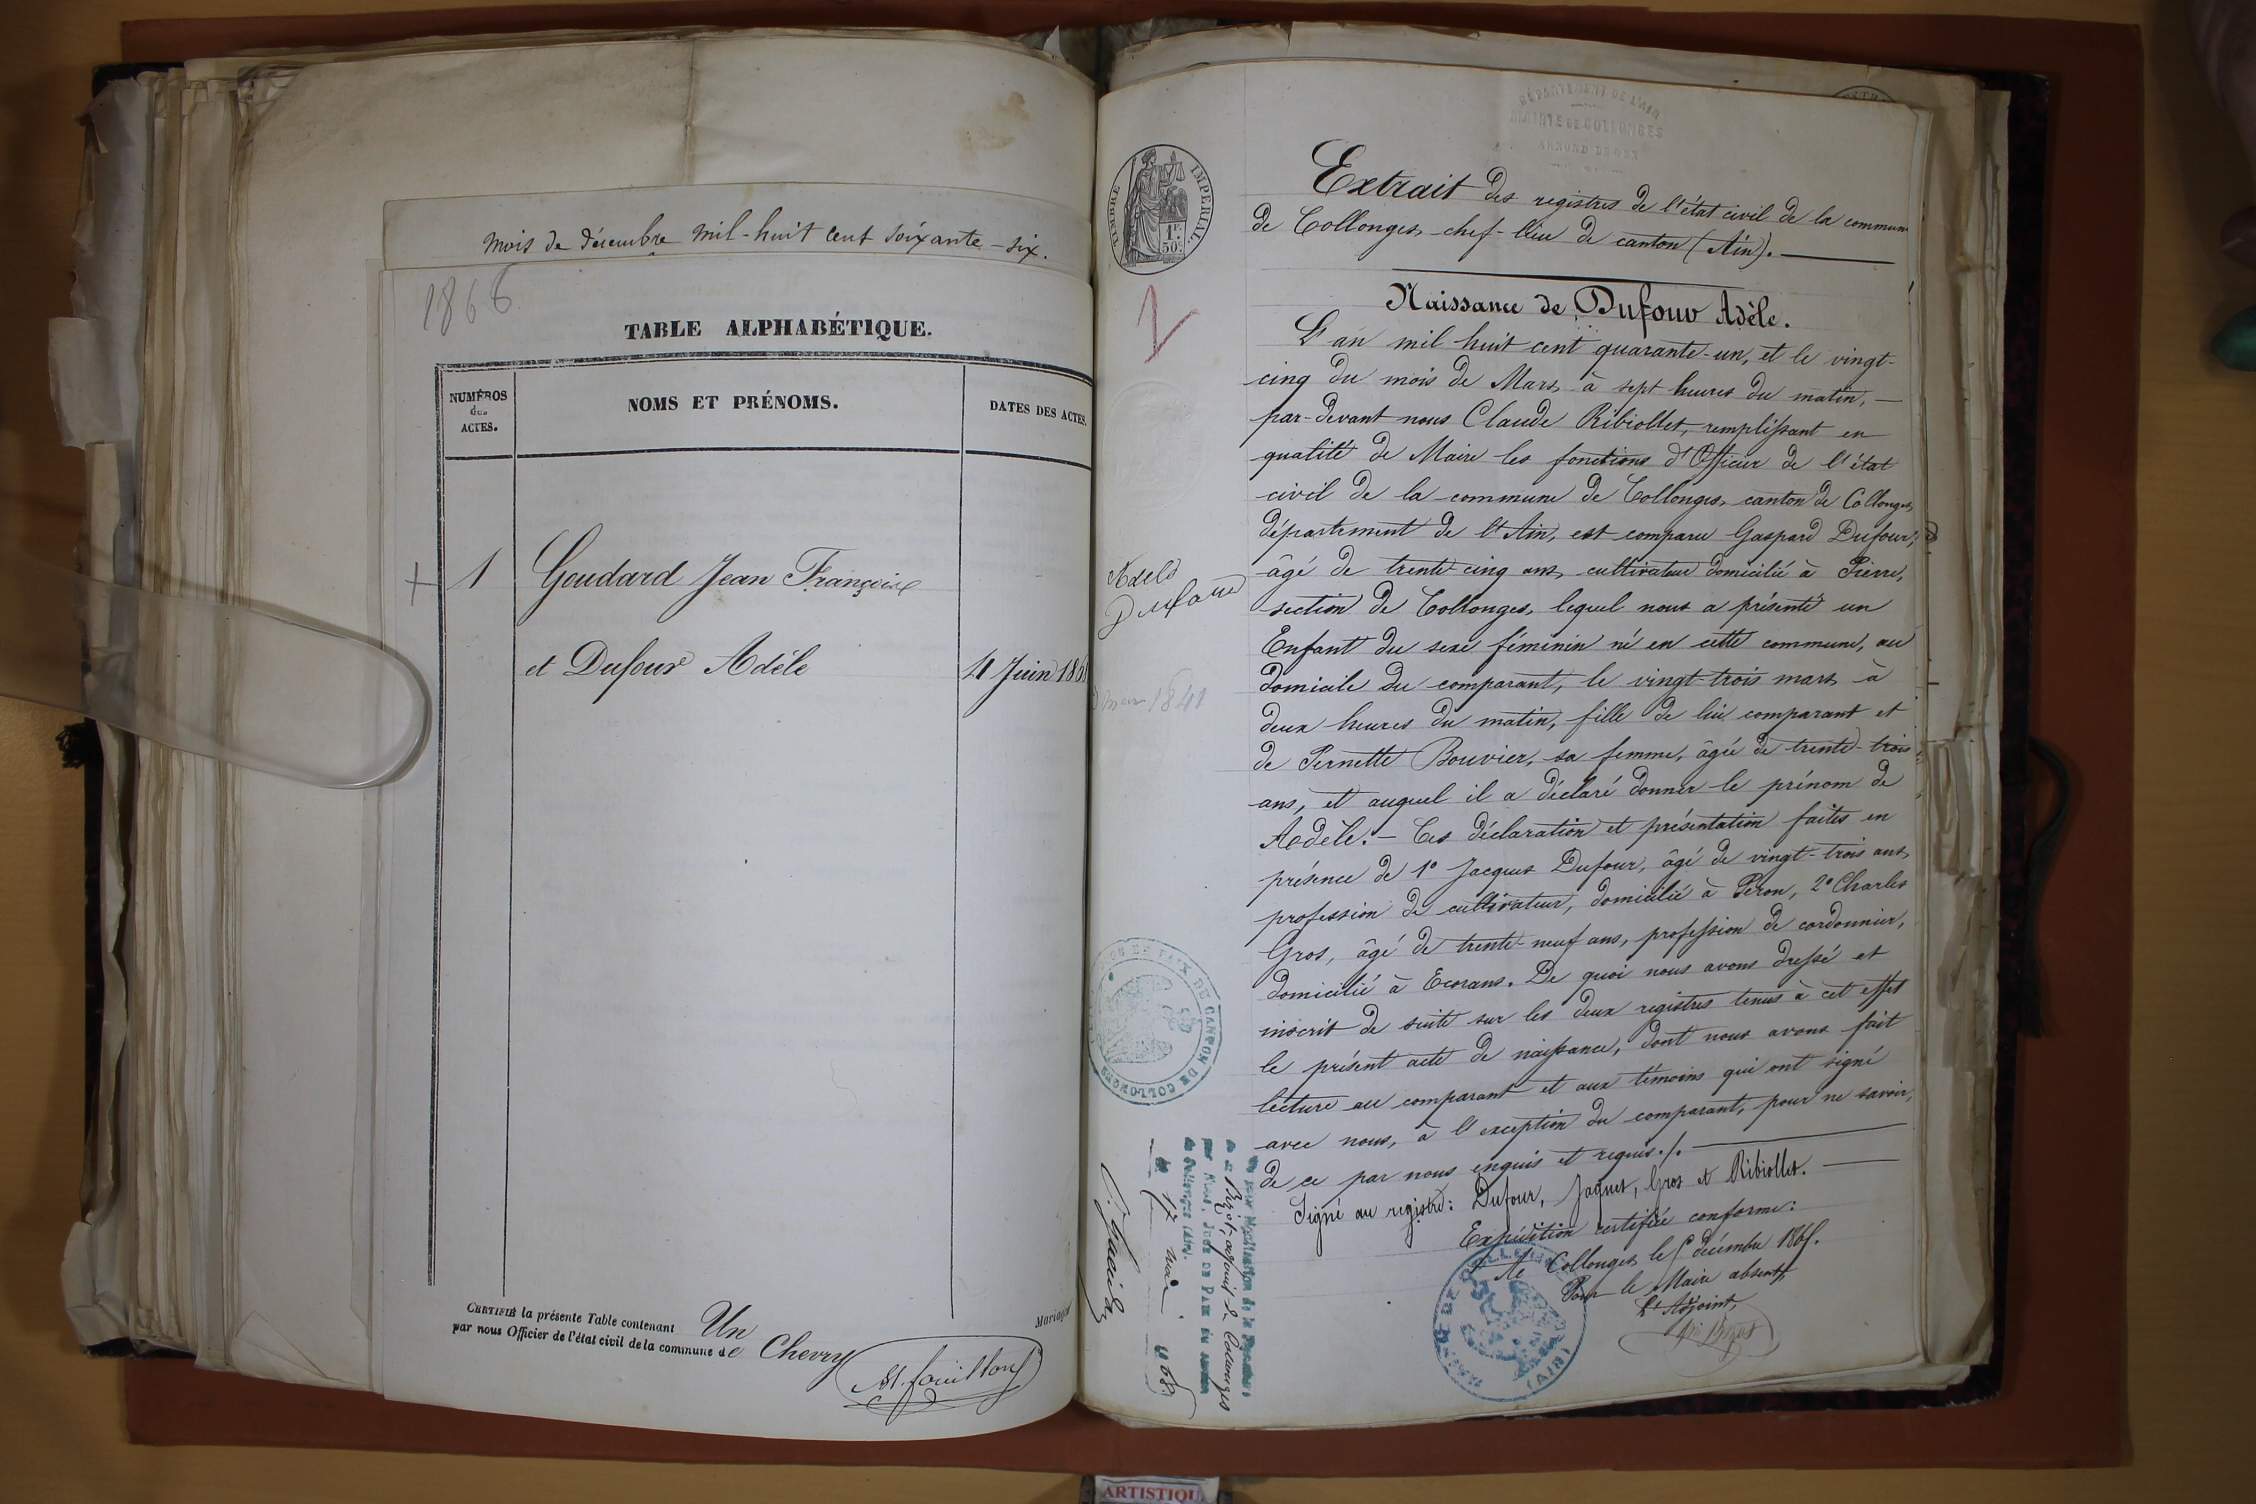 mois de décembre mil-huit cent soixante-six.
1866
TABLE ALPHABÉTIQUE.
NUMÉROS
des
ACTES.
NOMS ET PRÉNOMS.
DATES DES ACTES.
1 Goudard Jean François
et Dufour Adèle
4 Juin 186
CERTIFIÉ la présente Table contenant Un Mariage
par nous Officier de l'état civil de la commune de Chevry
DÉPARTEMENT DE L'AIN
MAIRIE DE COLLONGES
ARROND DE GEX
TIMBRE IMPERIAL
1F
50C
Extrait des registres de l'état civil de la commune
de Collonges, chef-lieu de canton (Ain).
Naissance de Dufour Adèle.
L'an mil huit cent quarante-un, et le vingt-
cinq du mois de Mars, à sept heures du matin,
par-devant nous Claude Ribiollet, remplissant en
qualité de Maire les fonctions d'Officier de l'état
civil de la commune de Collonges, canton de Collonges,
département de l'Ain, est comparu Gaspard Dufour,
âgé de trente-cinq ans, cultivateur domicilié à Pierre,
section de Collonges, lequel nous a présenté un
Enfant du sexe féminin né en cette commune, au
domicile du comparant, le vingt-trois mars à
deux heures du matin, fille de lui comparant et
de Pernette Bouvier, sa femme, âgée de trente-trois
ans, et auquel il a déclaré donner le prénom de
Adèle. - Ces déclaration et présentation faites en
présence de 1º Jacques Dufour, âgé de vingt-trois ans,
profession de cultivateur, domicilié à Péron, 2º Charles
Gros, âgé de trente-neuf ans, profession de cordonnier,
domicilié à Ecorans. De quoi nous avons dressé et
inscrit de suite sur les deux registres tenus à cet effet
le présent acte de naissance, dont nous avons fait
lecture au comparant et aux témoins qui ont signé
avec nous, à l'exception du comparant, pour ne savoir,
de ce par nous enquis et requis./.
Signé au registre: Dufour, Jaques, Gros et Ribiollet.
Expédition certifiée conforme:
Collonges, le décembre 186
Pour le Maire absent,
L'Adjoint,
Adèle
Dufour
mars 1841
DE PAIX DU CANTON DE COLLONGES
Vu pour légalisation de la signature
de M. Bizot, adjoint de Collonges
par Nous, Juge de Paix du canton
de Collonges (Ain).
le 17 mai 1868.
(AIN)
ARTISTIQU